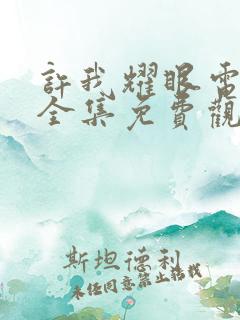 許我耀眼電
全集免費觀
斯坦德利
未经同意禁止搭载